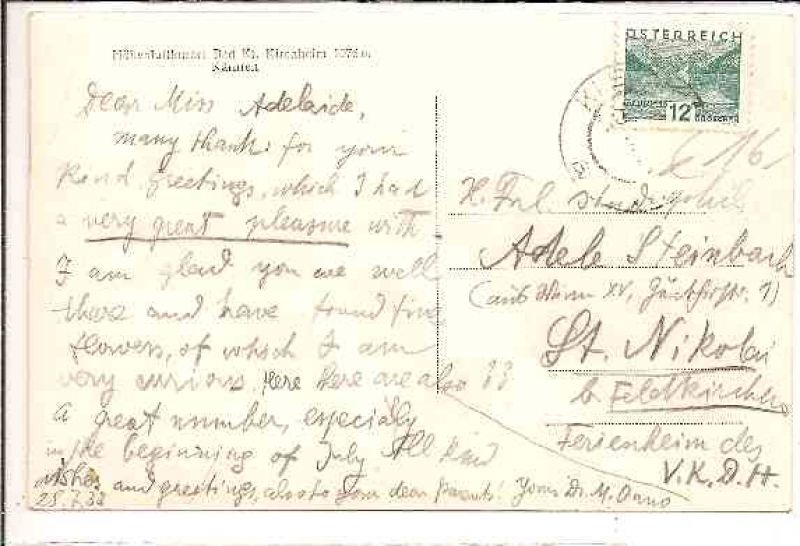 ÖSTERREICH
12
Kärnten
Dear Miss Adelaide,
many thanks for your
kind greetings, which I had
a very great pleasure with
I am glad you are well
there and have found fine
flowers, of which I am
very curious. Here there are also
a great number, especially
in the beginning of July All kind
wishes and greetings, also to your dear Parents! Yours Dr. M.
28.7.33
H. Frl. stud. phil.
Adele Steinbach
(aus Wien XV, 1)
St. Nikolai
b. Feldkirchen
Ferienheim des
V.K.D.H.